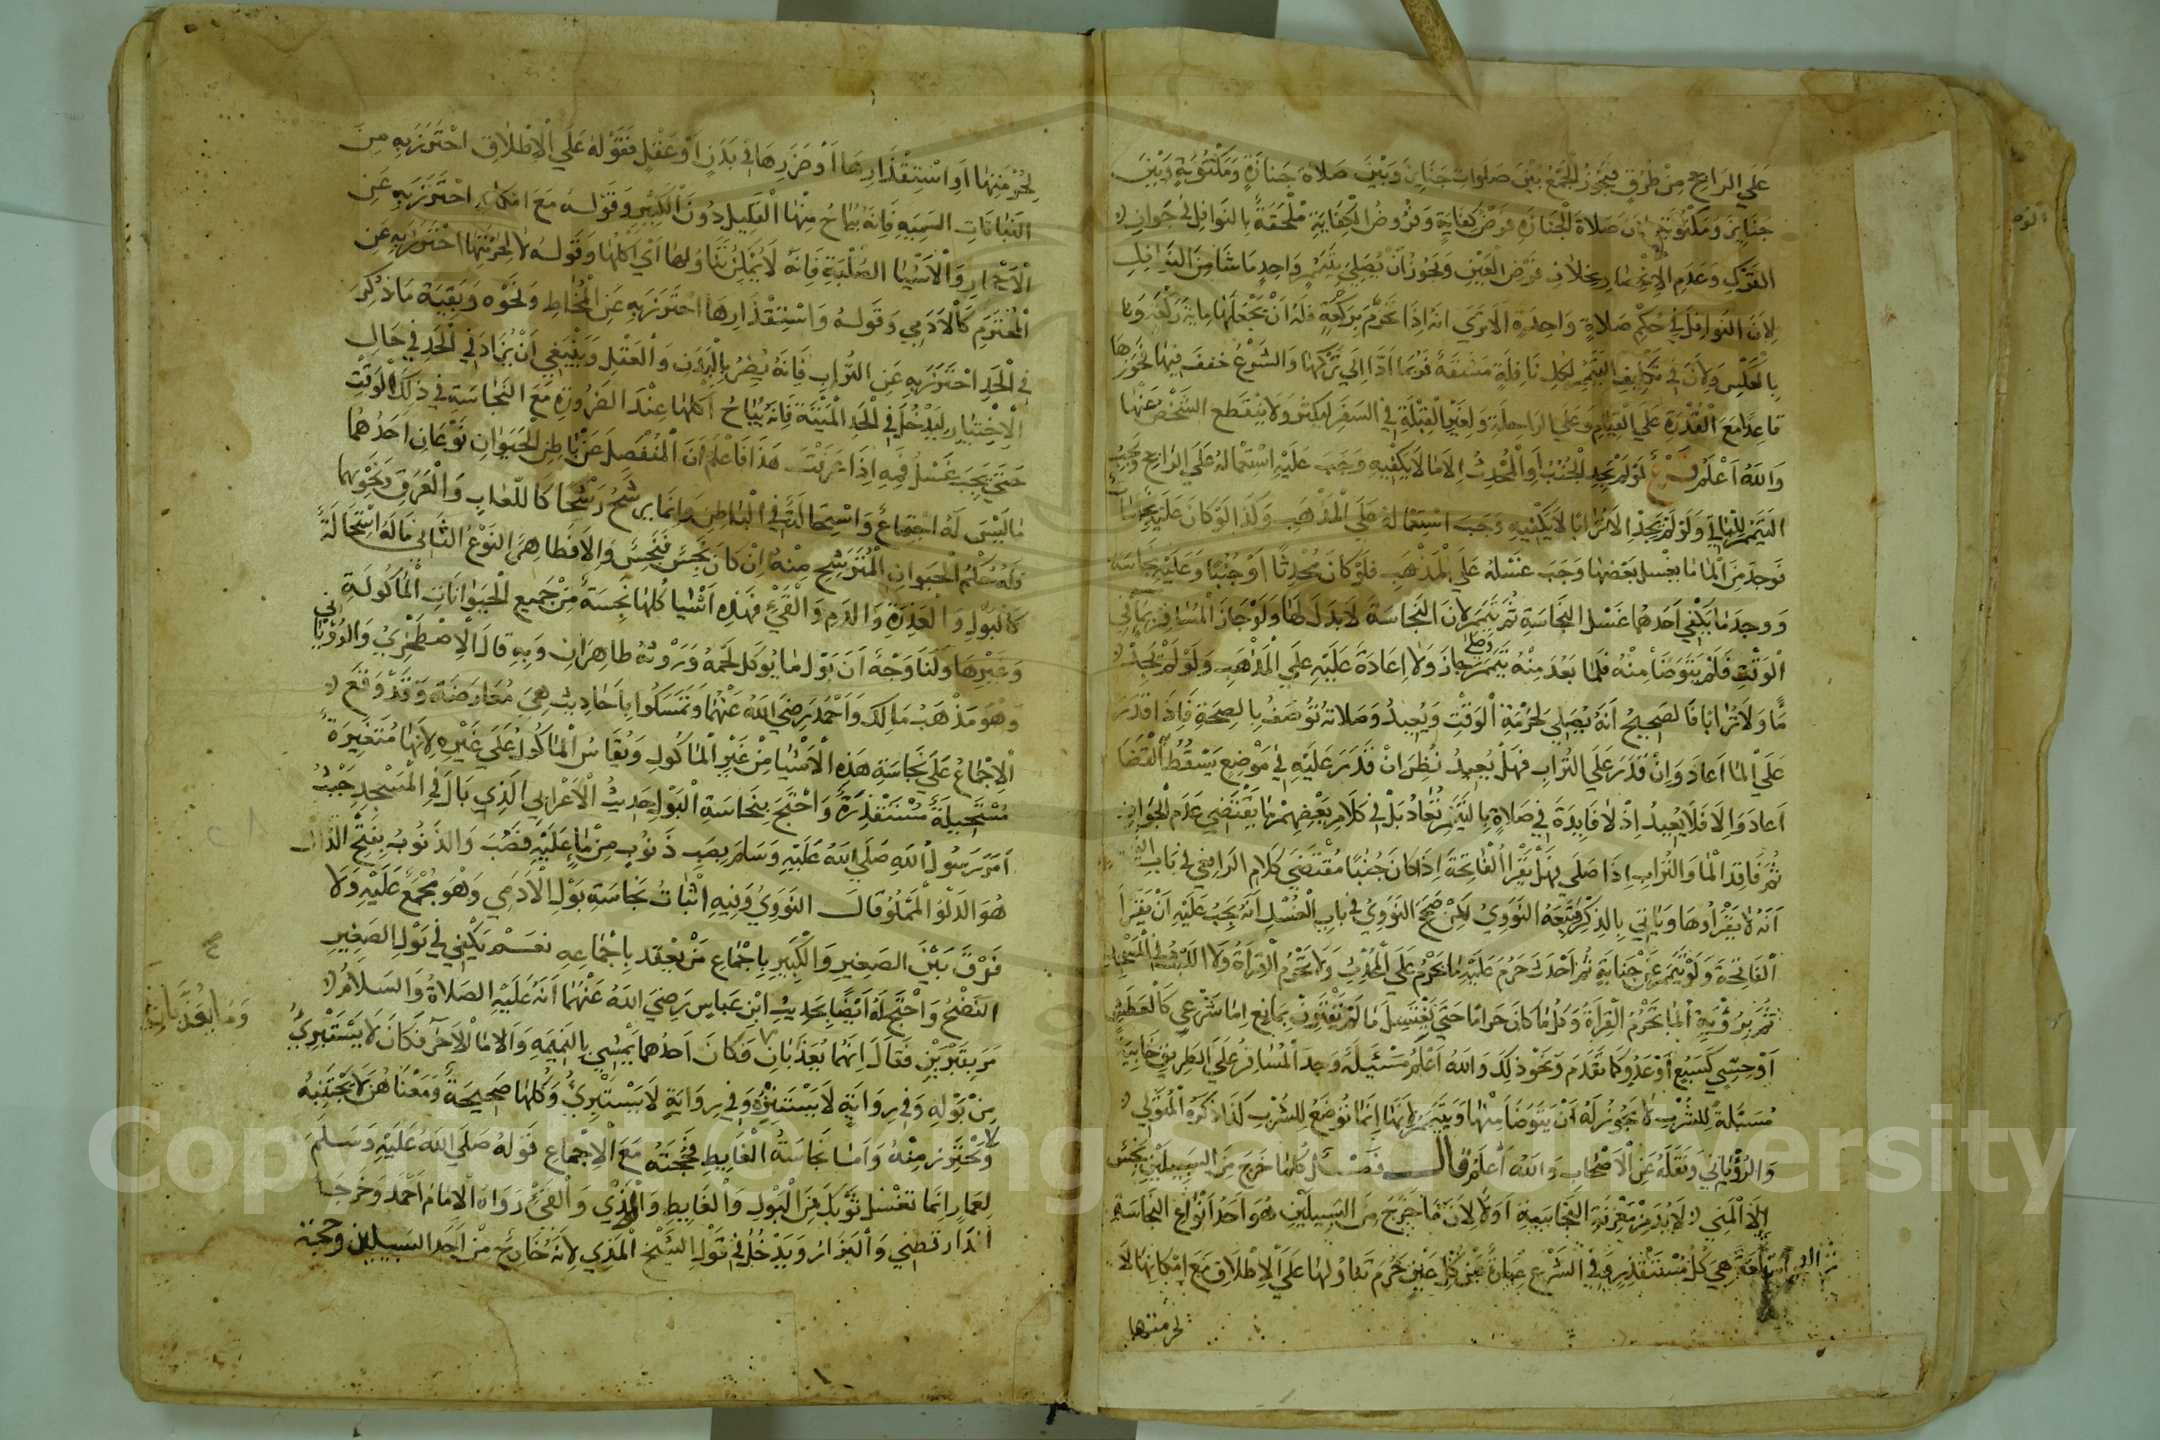 علي الراجح من طرق فيجوز الجمع بين صلوات جنايز وبين صلاة جنازة ومكتوبة وبين
جنايز ومكتوبة لان صلاة الجنازة فرض كفاية وفروض الكفاية ملحقة بالنوافل في جواز
الترك وعدم الانحصار بخلاف فرض العين ويجوز ان يصلي بتيمم واحد ما شا من النوافل
لان النوافل في حكم صلاة واحدة الا تري انه اذا تحرم بركعة فله ان يجعلها ماية ركعة وبا
بالعكس ولان في تكليف التيمم لكل نافلة مشقة فربما ادا الي تركها والشرع خفف فيها فجوزها
قاعدا مع القدرة علي القيام وعلي الراحلة ولغير القبلة في السفر ليكثر ولا ينقطع الشخص عنها
والله اعلم فرع لو لم يجد الجنب او المحدث الا ما لا يكفيه وجب عليه استعماله علي الراجح ويجب
التيمم للباقي ولو لم يجد الا ترابا لا يكفيه وجب استعماله علي المذهب وكذا لو كان عليه نجاسات
فوجد من الما ما يغسل بعضها وجب غسله علي المذهب فلو كان محدثا او جنبا وعليه نجاسة
ووجد ما يكفي احدهما غسل النجاسة ثم تيمم لان النجاسة لا بدل لها ولو جاز المسافر بما في
الوقت فلم يتوضا منه فلما بعد منه تيمم وصلي جاز ولا اعادة عليه علي المذهب ولو لم يجد
ما ولا ترابا فالصحيح انه يصلي لحرمة الوقت ويعيد وصلاته توصف بالصحة فاذا قدر
علي الما اعاد وان قدر علي التراب فهل يعيد نظر ان قدر عليه في موضع يسقط القضا
اعاد والا فلا يعيد اذ لا فايدة في صلاة بالتيمم تعاد بل في كلام بعضهم ما يقتضي عدم الجواز
ثم فاقد الما والتراب اذا صلي هل يقرا الفاتحة اذا كان جنبا مقتضي كلام الرافعي في باب
انه لا يقراوها وياتي بالذكر وتبعه النووي لكن صحح النووي في باب الغسل انه يجب عليه ان يقرا
الفاتحة ولو تيمم عن جنابة ثم احدث حرم عليه ما يحرم علي المحدث ولا تحرم القراة ولا اللبث في المسجد
ثم برؤية الما تحرم القراة وكل ما كان حراما حتي يغتسل ما لم يقترن بمانع اما شرعي كالعطش
او حسي كسبع او عدو كما تقدم ونحو ذلك والله اعلم مسئلة وجد المسافر علي الطريق خابية
مسبلة للشرب لا يجوز له ان يتوضا منها ويتيمم لانها انما توضع للشرب كذا ذكره المتولي
والرؤياني ونقله عن الاصحاب والله اعلم قال فصل كلما خرج من السبيلين نجس
الا المني لا بد من معرفة النجاسة اولا لان ما خرج من السبيلين هو احد انواع النجاسة
هي كل مستقذر وفي الشرع عبارة عن كل عين حرم تناولها علي الاطلاق مع امكانها لا
لحرمتها
لحرمتها او استقذارها او ضررها في بدن او عقل فقوله علي الاطلاق احترز به من
النباتات السمية فانه يباح منها القليل دون الكثير وقوله مع امكان احترز به عن
الاحجار والاشيا الصلبة فانه لا يمكن تناولها اي اكلها وقوله لا لحرمتها احترز به عن
المحترم كالادمي وقوله واستقذارها احترز به عن المخاط ونحوه وبقية ما ذكر
في الحد احترز به عن التراب فانه يضر بالبدن والعقل وينبغي ان يزاد في الحد في حال
الاختيار ليدخل في الحد الميتة فانه يباح اكلها عند الضرورة مع النجاسة في ذلك الوقت
حتي يجب غسل فيه اذا عرفت هذا فاعلم ان المنفصل عن باطن الحيوان نوعان احدهما
ما ليس له اجتماع واستحالة في الباطن وانما يرشح رشحا كاللعاب والعرق ونحوهما
فله حكم الحيوان المترشح منه ان كان نجس فنجس والا فطاهر النوع الثاني ما له استحالة
كالبول والعذرة والدم والقي فهذه اشيا كلها نجسة من جميع الحيوانات الماكولة
وغيرها ولنا وجه ان بول ما يوكل لحمه وروثه طاهران وبه قال الاصطخري والرؤياني
وهو مذهب مالك واحمد رضي الله عنهما وتمسكوا باحاديث هي معارضة وقد وقع
الاجماع علي نجاسة هذه الاشيا من غير الماكول ويقاس الماكول علي غيره لانها متغيرة
مستحيلة مستقذرة واحتج بنجاسة البول حديث الاعرابي الذي بال في المسجد حيث
امر رسول الله صلي الله عليه وسلم بصب ذنوب من ما عليه فصب والذنوب بفتح الذال
هو الدلو المملو قال النووي وفيه اثبات نجاسة بول الادمي وهو مجمع عليه ولا
فرق بين الصغير والكبير باجماع من يعتد باجماعه نعم يكفي في بول الصغير
النضح واحتج له ايضا بحديث ابن عباس رضي الله عنهما انه عليه الصلاة والسلام
مر بقبرين فقال انهما يعذبان فكان احدهما يمشي بالنميمة واما الاخر فكان لا يستبري
من بوله وفي رواية لا يستنزه وفي رواية لا يستبري وكلها صحيحة ومعناهن لا يجتنبه
ويحترز منه واما نجاسة الغايط فحجته مع الاجماع قوله صلي الله عليه وسلم
لعمار انما تغسل ثوبك من البول والغايط والمذي والقي رواه الامام احمد وخرجا
الدارقطني والبزار ويدخل في قول الشيخ المذي لانه خارج من احد السبيلين وحجته
وما يعذبان